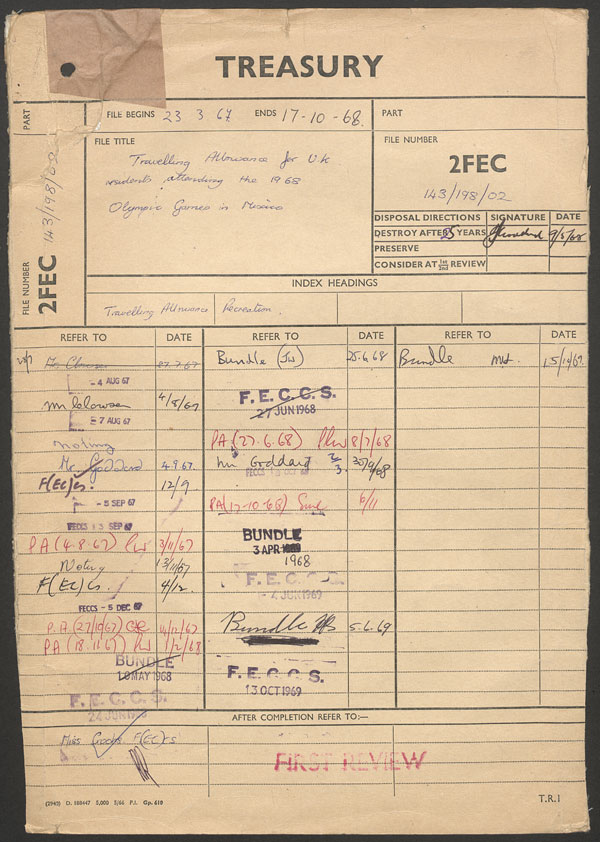 TREASURY
PART
FILE BEGINS 23 3 67 ENDS 17-10-68.
PART
FILE TITLE
Travelling Allowance for U.K.
residents attending the 1968
Olympic Games in Mexico
FILE NUMBER
2FEC
143/198/02
FILE NUMBER
2FEC 143/198/02
DISPOSAL DIRECTIONS SIGNATURE DATE
DESTROY AFTER 25 YEARS 9/5/68
PRESERVE
CONSIDER AT 1st 2nd REVIEW
INDEX HEADINGS
Travelling Allowance Recreation
REFER TO DATE
Mr Clowser
- 4 AUG 67
Mr Clowser 4/8/67
- 7 AUG 67
Noting
Mr. Goddard 4.9.67
F(EC)Cs. 12/9
- 5 SEP 67
FECCS SEP 67
PA (4.8.67) 3/11/67
Noting 13/11/67
F(EC)Cs. 4/12.
FECCS - 5 DEC 67
P.A (27/10/67)
PA (18.11.67) 1/2/68
BUNDLE
10 MAY 1968
F.E.C.C.S.
REFER TO DATE
Bundle 25.6.68
F.E.C.C.S.
27 JUN 1968
PA (27.6.68) 8/7/68
Mr Goddard 30/9/68
PA (17-10-68) 6/11
BUNDLE
3 APR
1968
F.E.C.C.S.
- 4 JUN 1969
Bundle 5.6.69
F.E.C.C.S.
13 OCT 1969
REFER TO DATE
Bundle
AFTER COMPLETION REFER TO:—
Miss F(EC)Cs
FIRST REVIEW
(2940) Ct. 188447 5,000 5/66 P.I. Gp. 610
T.R.1